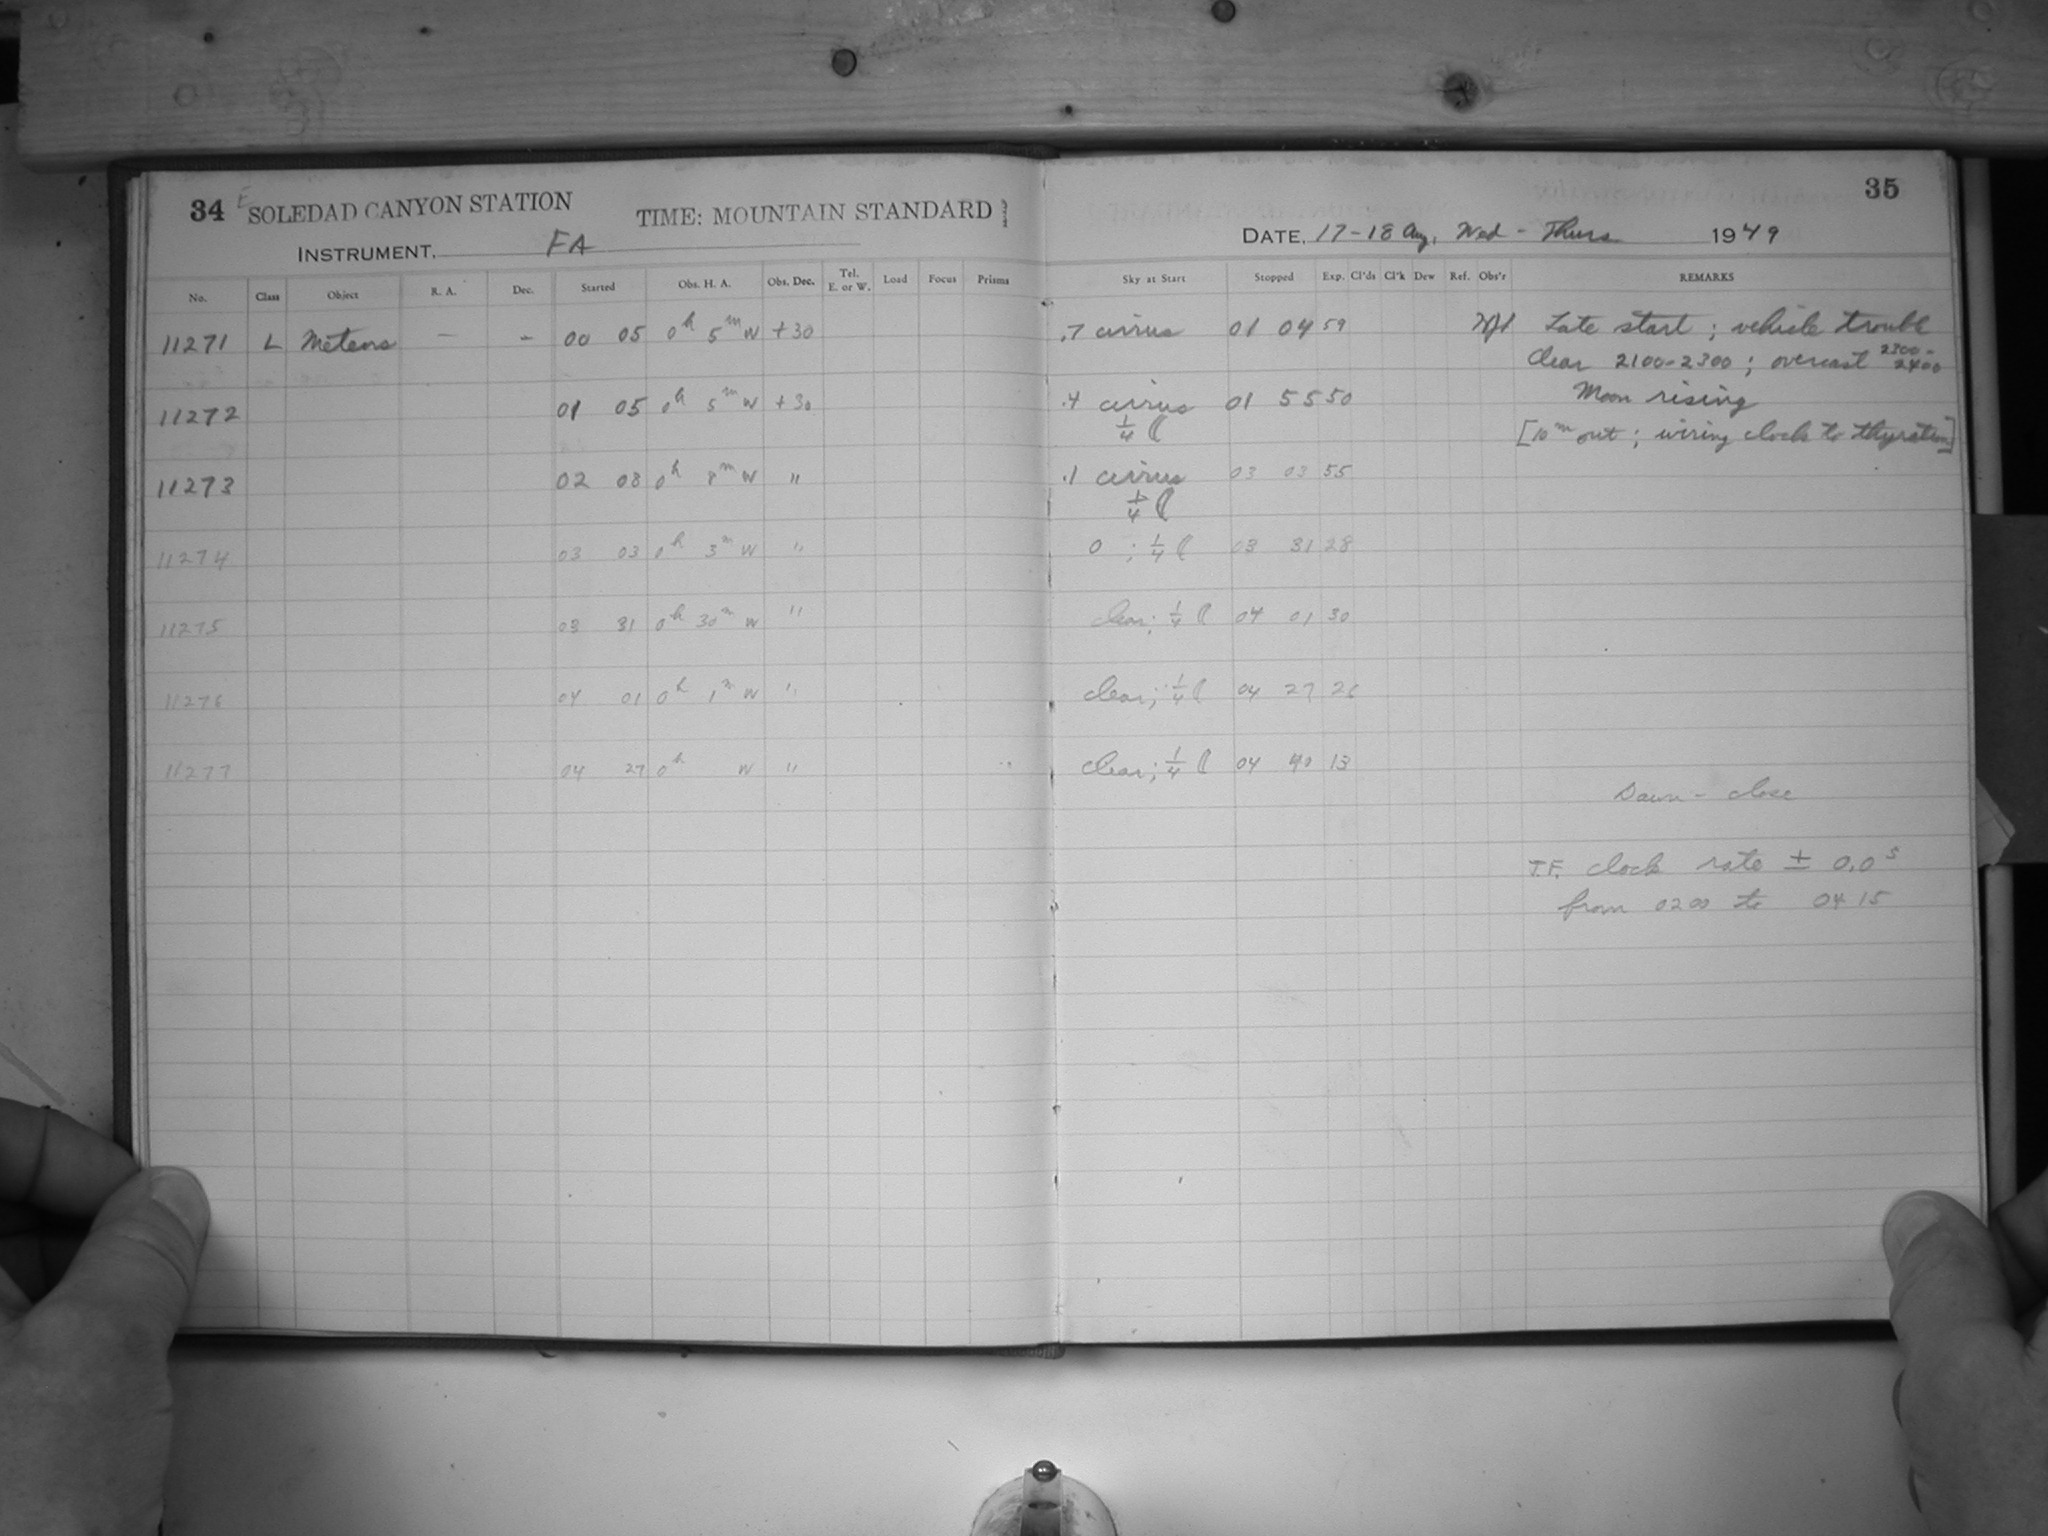 34 E SOLEDAD CANYON STATION TIME: MOUNTAIN STANDARD
INSTRUMENT, FA
No. Class Object R. A. Dec. Started Obs. H. A. Obs. Dec. Tel. E. or W. Load Focus Prisms
11271 L Meteors — – 00 05 0h 5m W +30
11272 01 05 0h 5m W +30
11273 02 08 0h 8m W "
11274 03 03 0h 3m W "
11275 03 31 0h 30m W "
11276 04 01 0h 1m W "
11277 04 27 0h W "
35
DATE, 17-18 Aug, Wed - Thurs 1949
Sky at Start Stopped Exp. Cl'ds Cl'k Dew Ref. Obs'r REMARKS
.7 cirrus 01 04 59 Late start; vehicle trouble
clear 2100-2300; overcast 2300-2400
.4 cirrus 01 55 50 Moon rising
1/4 ☾ [10m out; wiring clock to thyratron]
.1 cirrus 03 03 55
1/4 ☾
0 ; 1/4 ☾ 03 31 28
clear; 1/4 ☾ 04 01 30
clear; 1/4 ☾ 04 27 26
clear; 1/4 ☾ 04 40 13
Dawn - close
T.F. clock rate ± 0.0s
from 0200 to 0415